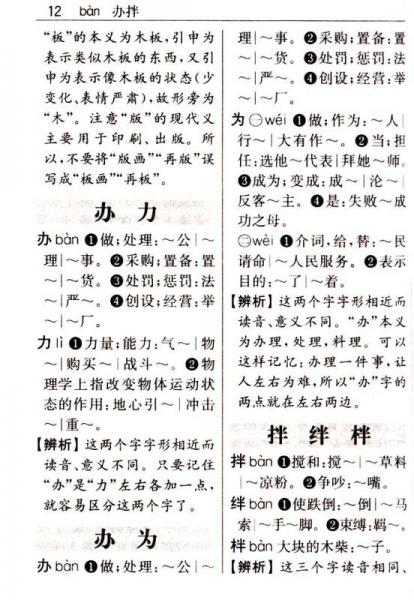 12 bàn 办拌
“板”的本义为木板,引申为
表示类似木板的东西,又引
申为表示像木板的状态(少
变化、表情严肃),故形旁为
“木”。注意“版”的现代义
主要用于印刷、出版。所
以,不要将“版画”“再版”误
写成“板画”“再板”。
办 力
办 bàn ❶做;处理:～公|～
理|～事。❷采购;置备:置
～|～货。❸处罚;惩罚:法
～|严～。❹创设;经营:举
～|～厂。
力 lì ❶力量;能力:气～|物
～|购买～|战斗～。❷物
理学上指改变物体运动状
态的作用:地心引～|冲击
～|重～。
【辨析】这两个字字形相近而
读音、意义不同。只要记住
“办”是“力”左右各加一点,
就容易区分这两个字了。
办 为
办 bàn ❶做;处理:～公|～
理|～事。❷采购;置备:置
～|～货。❸处罚;惩罚:法
～|严～。❹创设;经营:举
～|～厂。
为 ㊀wéi ❶做;作为:～人|
行～|大有作～。❷当;担
任:选他～代表|拜她～师。
❸成为;变成:成～|沦～|
反客～主。❹是:失败～成
功之母。
㊁wèi ❶介词,给,替:～民
请命|～人民服务。❷表示
目的:～了|～着。
【辨析】这两个字字形相近而
读音、意义不同。“办”本义
为办理,处理,料理。可以
这样记忆:办理一件事,让
人左右为难,所以“办”字的
两点就在左右两边。
拌 绊 柈
拌 bàn ❶搅和;搅～|～草料
|～凉粉。❷争吵:～嘴。
绊 bàn ❶使跌倒:～倒|～马
索|～手～脚。❷束缚:羁～。
柈 bàn 大块的木柴:～子。
【辨析】这三个字读音相同、